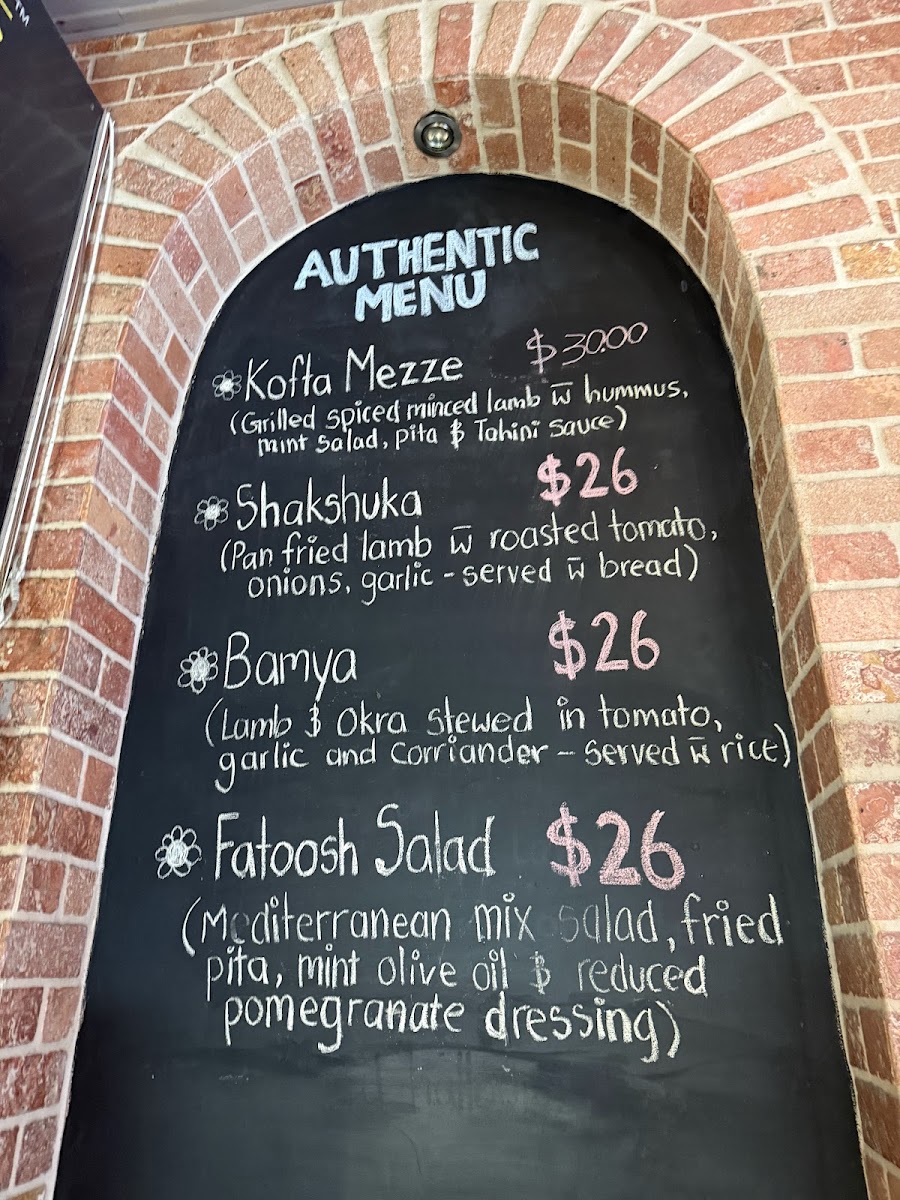 AUTHENTIC
MENU
Kofta Mezze $30.00
(Grilled spiced minced lamb w̅ hummus,
mint salad, pita & Tahini sauce)
Shakshuka $26
(Pan fried lamb w̅ roasted tomato,
onions, garlic - served w̅ bread)
Bamya $26
(Lamb & Okra stewed in tomato,
garlic and Corriander - served w̅ rice)
Fatoosh Salad $26
(Mediterranean mix salad, fried
pita, mint olive oil & reduced
pomegranate dressing)